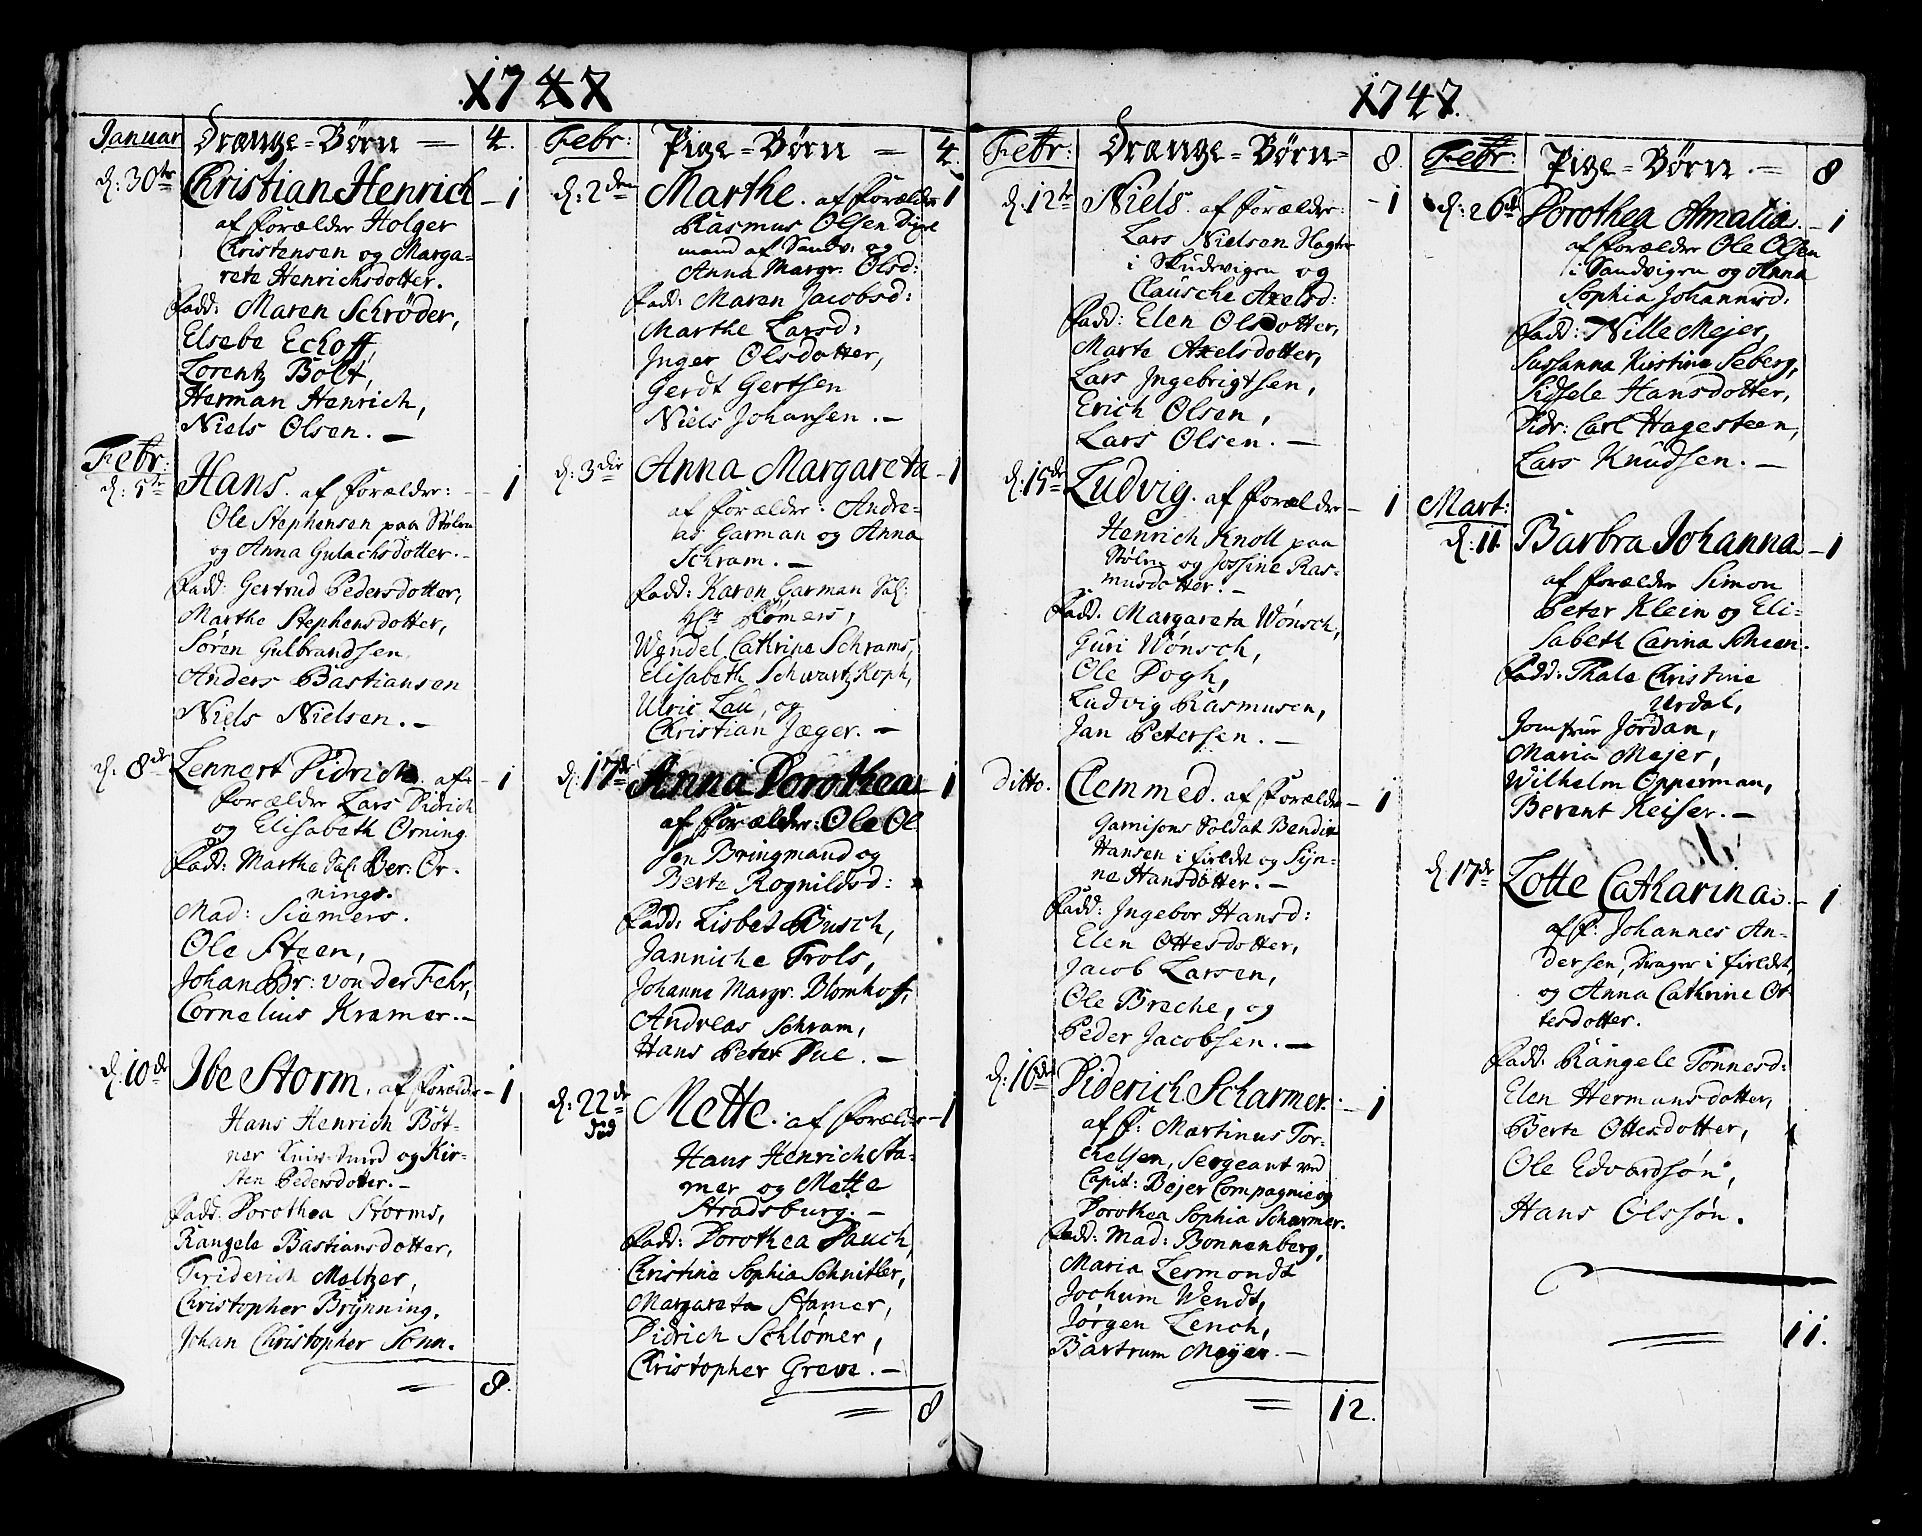 1747
Januar Drænge=Børn = 4.
d: 30te Christian Henrich - 1
af Forældre Holger
Christensen og Marga=
rete Henrichsdotter.
Fadd: Maren Schrøder,
Elsebe Echoff,
Lorentz Bolt,
Herman Henrich,
Niels Olsen. —
Febr:
d: 5te Hans. af Forældre: - 1
Ole Stephensen paa Stølen
og Anna Gulachsdotter. -
Fadd: Gertrud Pedersdotter,
Marthe Stephensdotter,
Søren Gulbrandsen
Anders Bastiansen
Niels Nielsen. —
d. 8de Lennert Didrich. af - 1
Forældre Lars Didrich
og Elisabeth Orning
Fadd: Marthe Sal: Ber: Or-
nings.
Mad: Siemers.
Ole Steen,
Johan Br: von der Fehr,
Cornelius Kramer. —
d: 10de Ibe Storm. af Forældre - 1
Hans Henrich Bøt-
ner og Kir-
sten Pedersdotter. -
Fadd. Dorothea Storms,
Rangele Bastiansdotter,
Friderich Meltzer,
Christopher Brynning,
Johan Christopher Sonn.
8.
Febr: Pige=Børn = 4.
d: 2den Marthe. af Forældre 1
Rasmus Olsen
mand af Sandv: og
Anna Margr: Olsd:
Fadd: Maren Jacobsd:
Marthe Larsd:
Inger Olsdotter,
Gerdt Gertsen
Niels Johansen. —
d: 3die Anna Margareta - 1
af Forældre: Andre-
as Garman og Anna
Schram. —
Fadd: Karen Garman Sal:
Hr Rømers,
Wendel Cathrine Schrams,
Elisabeth Schwartzkoph,
Ulric Lau, og
Christian Jæger. —
d: 17de Anna Dorothea - 1
af Forældre: Ole Ol
sen Bringmand og
Berte Rognildsd:
Fadd: Lisbet Busch,
Janniche Trols,
Johanne Margr: Blomhoff,
Andreas Schram,
Hans Peter Due. —
d: 22de Mette. af Forældre - 1
Hans Henrich Sta-
mer og Mette
Stradsburg. —
Fadd: Dorothea Pauch,
Christine Sophia Schnitler,
Margareta Stamer,
Didrich Schlømer,
Christopher Greve. —
8
1747.
Febr: Drænge=Børn= 8.
d: 12te Niels. af Forældre: - 1
Lars Nielsen
i Skudevigen og
Clausche Axelsd:
Fadd: Elen Olsdotter,
Marte Axelsdotter,
Lars Ingebrigtsen,
Erich Olsen,
Lars Olsen. —
d: 15de Ludvig. af Forældre - 1
Henrich Knoll paa
Stølen og Jossine Ras-
musdotter. -
Fadd. Margareta Wønsch,
Guri Wønsch,
Ole Pogh,
Ludvig Rasmusen,
Jan Petersen. —
ditto. Clemmed. af Forældre - 1
Garnisons Soldat Bendix
Hansen i fieldet og Syn-
ne Hansdotter. —
Fadd: Ingebor Hansd:
Elen Ottesdotter,
Jacob Larsen,
Ole Breche, og
Peder Jacobsen. —
d: 16de Diderich Scharmer. - 1
af F: Martinus Tor-
chelsen, Sergeant ved
Capit: Bejer Compagnie og
Dorothea Sophia Scharmer.
Fadd: Mad: Bonnenberg,
Maria Lermondt
Jochum Wendt,
Jørgen Lench,
Bartrum Meyer. —
12.
Febr: Pige=Børn. = 8
d: 26de Dorothea Amalia. - 1
af Forældre Ole Olsen
i Sandvigen og Anna
Sophia Johannisd:
Fadd: Nille Mejer,
Sussanna Kirstine Seberg,
Sidsele Hansdotter,
Didr: Carl Hagesteen,
Lars Knudsen. —
Mart:
d: 11. Barbra Johanna - 1
af Forældre Simon
Peter Klein og Eli-
sabeth Carina Scheen.
Fadd: Thale Christine
Urdal,
Jomfrue Jordan,
Maria Mejer,
Wilhelm Opperman,
Berent Keiser. —
d: 17de Lotte Catharina. - 1
af F: Johannes An-
dersen, Drager i fieldet,
og Anna Cathrine Ot
tesdotter.
Fadd: Rangele Tønnesd:
Elen Hermansdotter,
Berte Ottesdotter,
Ole Edvardsøn,
Hans Olssøn.
11.